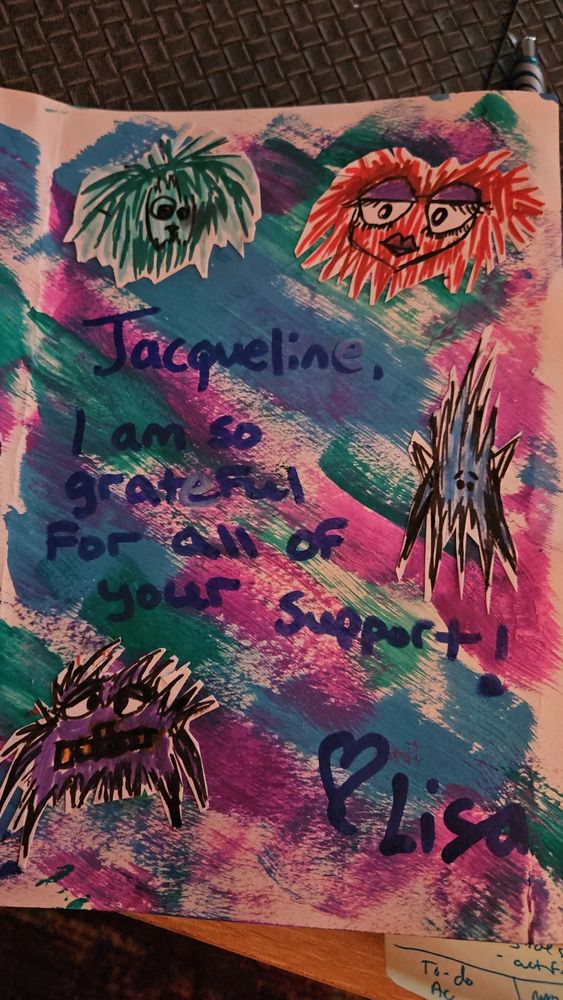 Jacqueline,
I am so
grateful
For all of
your support!
Lisa
To-do